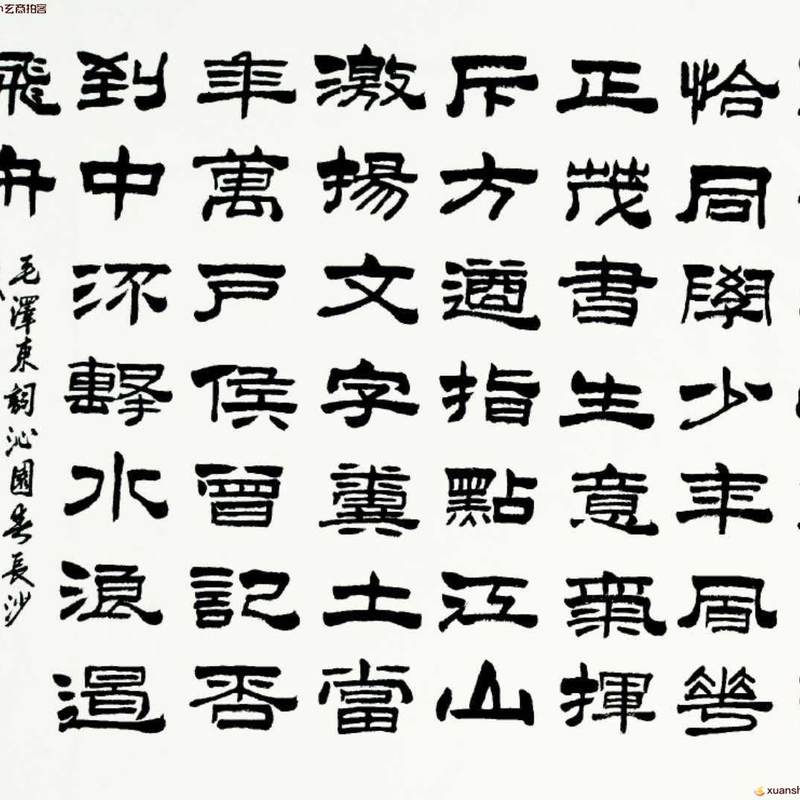 恰同學少年風華
正茂書生意氣揮
斥方遒指點江山
激揚文字糞土當
年萬戶侯曾記否
到中流擊水浪遏
飛舟
毛澤東詞沁園春長沙
玄商拍客
xuansh